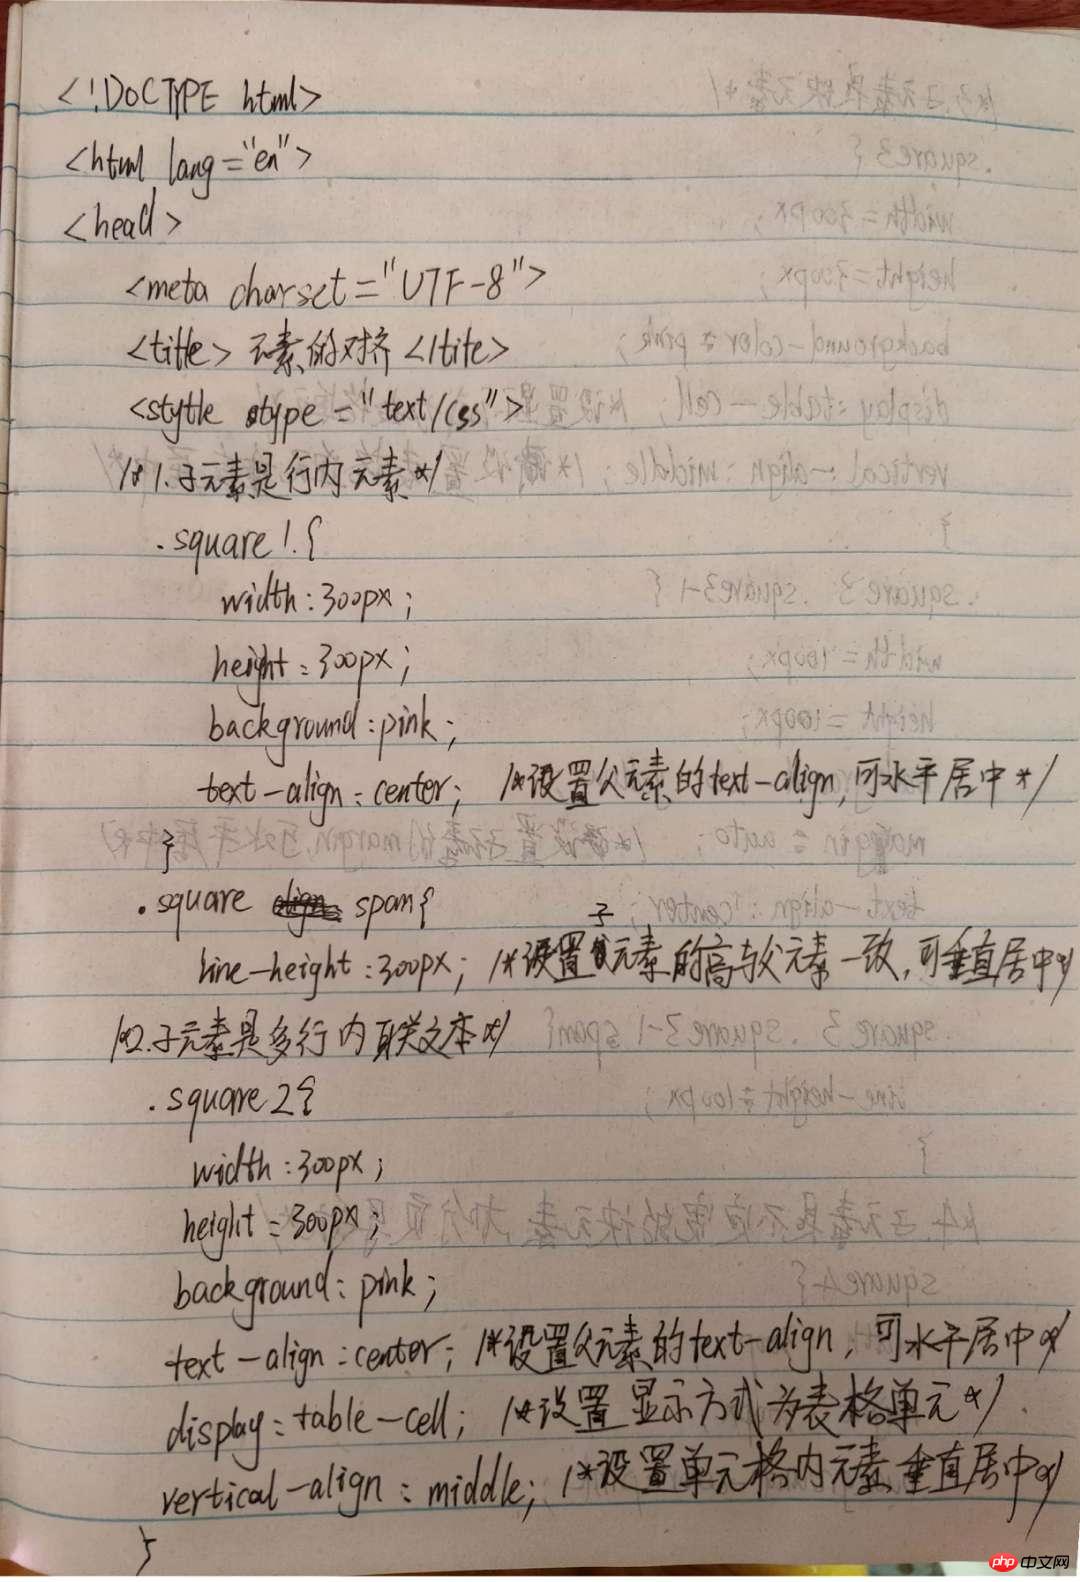 <!DOCTYPE html>
<html lang="en">
<head>
<meta charset="UTF-8">
<title>元素的对齐</tite>
<stytle type="text/css">
/*1.子元素是行内元素*/
.square1.{
width:300px;
height:300px;
background:pink;
text-align:center; /*设置父元素的text-align,可水平居中*/
}
.square span{
line-height:300px; /*设置子元素的高与父元素一致,可垂直居中*/
/*2.子元素是多行内联文本*/
.square2{
width:300px;
height:300px;
background:pink;
text-align:center; /*设置父元素的text-align,可水平居中*/
display:table-cell; /*设置显示方式为表格单元*/
vertical-align:middle; /*设置单元格内元素垂直居中*/
}
php中文网